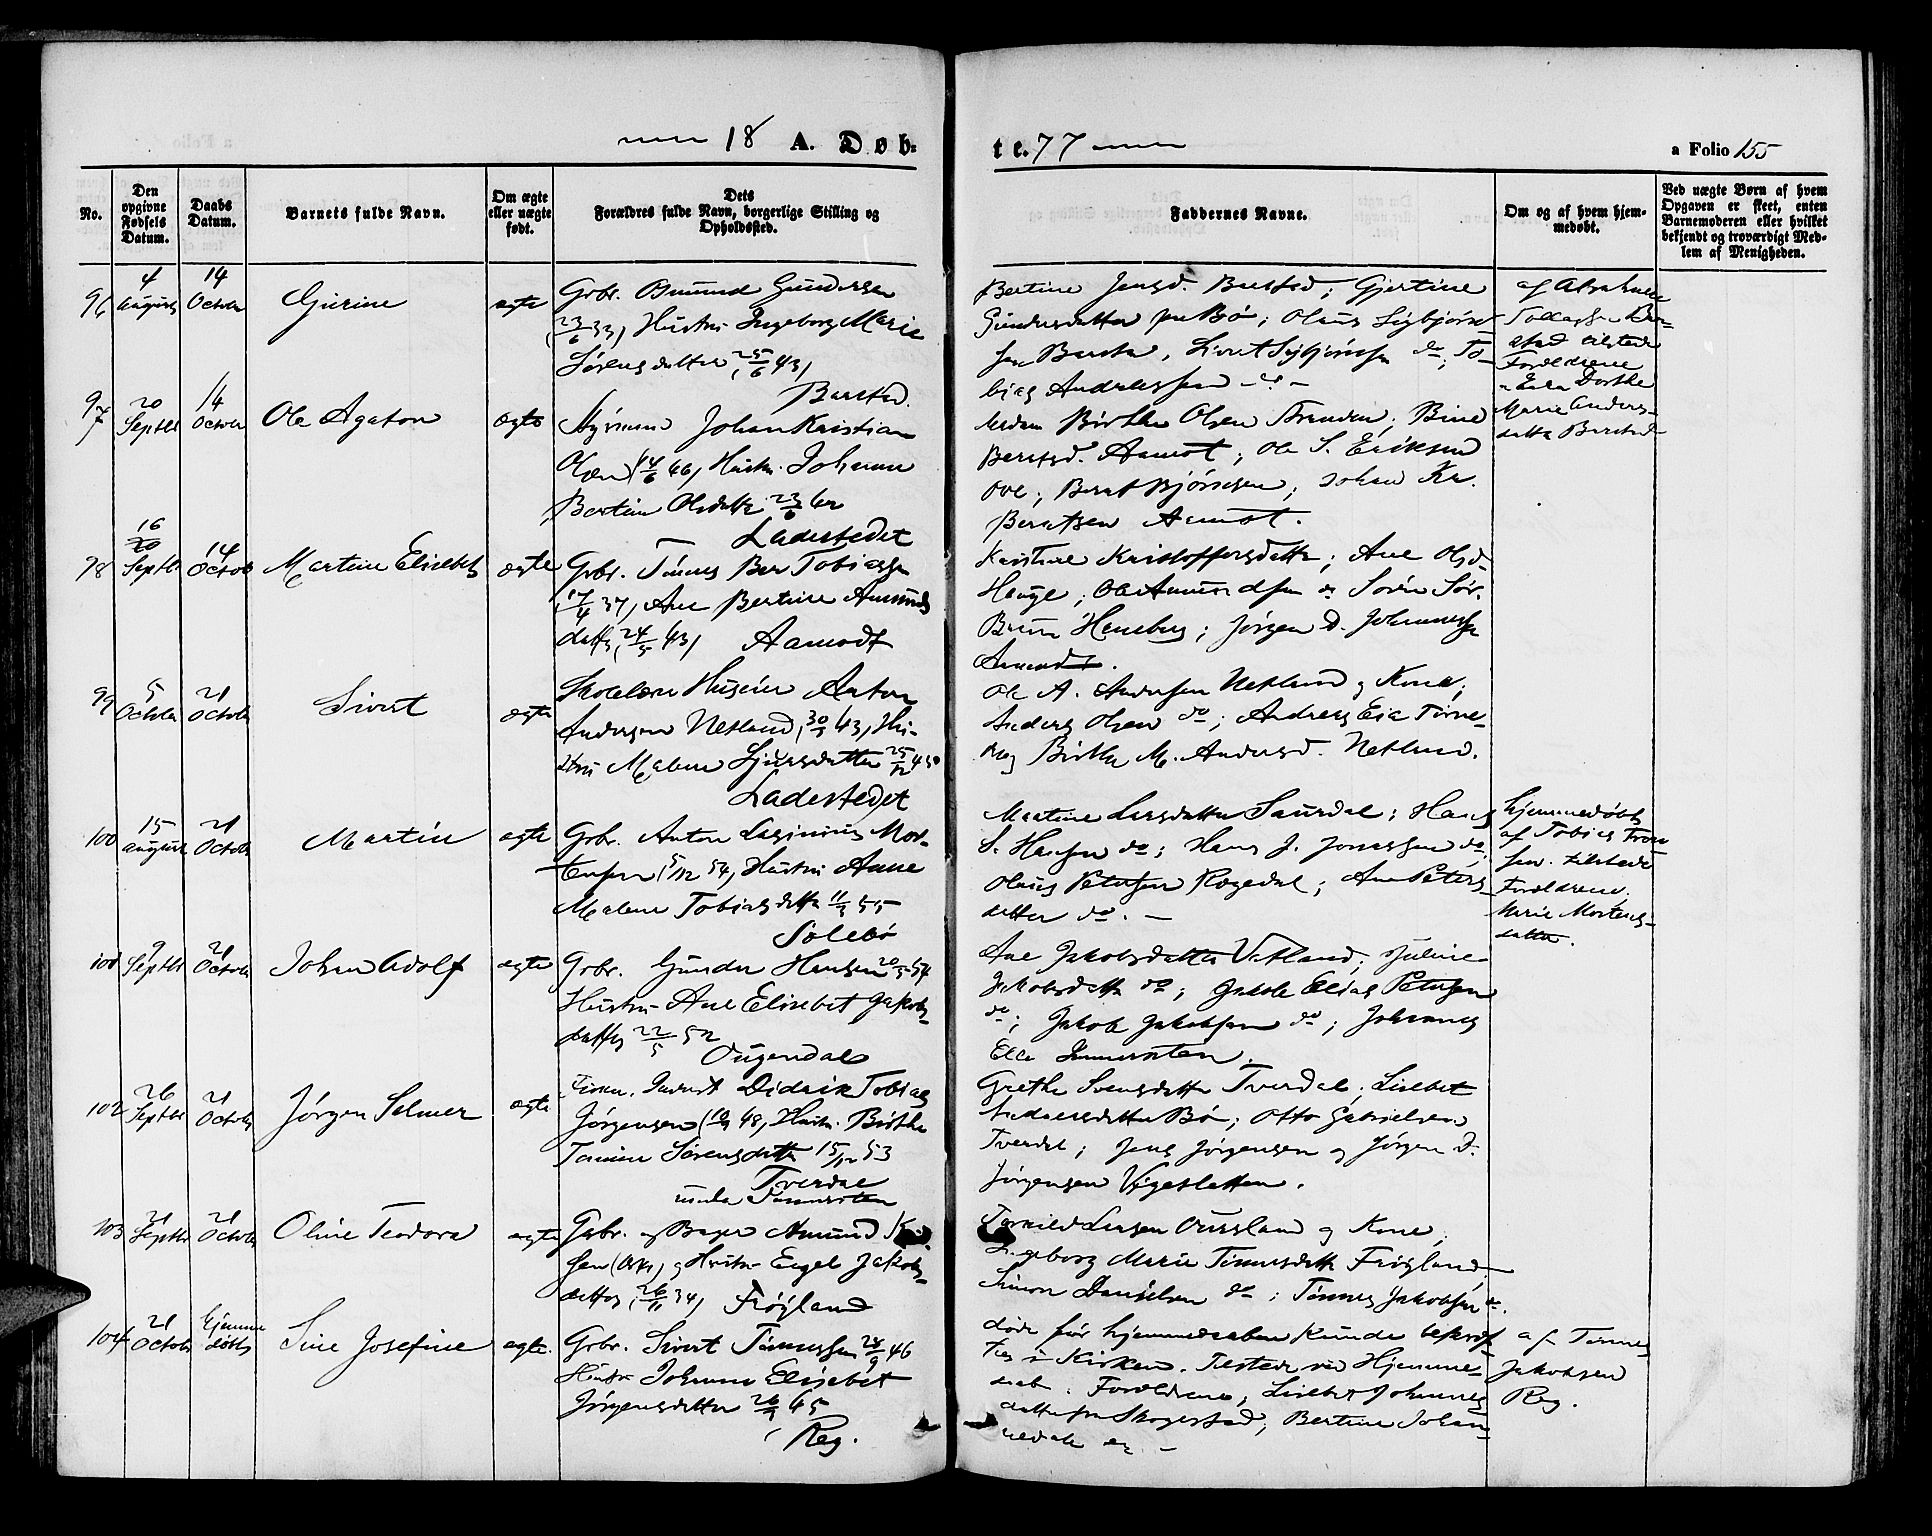 18 A. Døb-
te. 77
a Folio 155
No.
Den opgivne Fødsels Datum.
Daabs Datum.
Barnets fulde Navn.
Om ægte eller uægte født.
Dets Forældres fulde Navn, borgerlige Stilling og Opholdssted.
Faddernes Navne.
Om og af hvem hjem-
medøbt.
Ved uægte Børn af hvem
Opgaven er skeet, enten
Barnemoderen eller hvilket
bekjendt og troværdigt Med-
lem af Menigheden.
96 4 August 14 Octobr Gurine ægte Grbr. Gundersen
(23/6 33) Hustru Ingeborg Marie
Sørensdatter (25/6 43)
Barstad.
Bertine Jensd. Barstad; Gjertine
Gundersdatter Bø; Olaus Sigbjørn-
sen Barstad, Sigbjørnsen do; To-
bias Andreassen do
af Abraham
Tollagsen Bar-
stad tilstede
Forældrene
Dorthe
Marie Anders-
datter Barstad
97 20 Septbr 14 Octobr Ole Agaton ægte Styrmand Johan Kristian
Olsen (14/6 46) Hustru Johanne
Bertine Olsdatter 23/6 42
Ladestedet
Madam Birthe Olsen Stranden; Bine
Berntsd. Aamot; Ole S. Eriksen
Bernt Bjørnsen; Johan Kr.
Berntsen Aamot.
98 16 Septbr 14 Octob Martine Elisebet ægte Grbr. Tønnes Ber Tobiassen
(17/4 37) Ane Bertine Amunds
datter (24/5 43) Aamodt
Kristine Kristoffersdatter; Ane Olsd
Hauge; Ole Amundsen do Søren Sør.
Haneberg; Jørgen D. Johannessen
Aamodt.
99 5 Octobr 21 Octobr Sivert ægte Skolelærer Huseier Anton
Andersen Netland (30/3 43) Hu-
stru Malene Sjursdatter 25/12 45
Ladestedet
Ole A. Andersen Netland og Kone;
Anders Olsen do; Andreas Eia
Birthe M. Andersd. Netland.
100 15 August 21 Octobr Martin ægte Grbr. Anton Lasinius Mor-
tensen (5/12 54) Hustru Anne
Malene Tobiasdatter 11/3 55
Solebø
Martine Larsdatter Saurdal; Hans
S. Hansen do; Hans J. Jonassen do;
Olaus Petersen Rægedal; Ane Peters-
datter do. —
hjemmedøbt
af Tobias
sen. tilstede
Forældrene.
Marie Mortens-
datter.
101 9 Septbr 21 Octobr Johan Adolf ægte Grbr. Gunder Hansen 20/5 54
Hustru Ane Elisebet Jakobs-
datter 22/5 52
Ougendal
Ane Jakobsdatter Vatland; Juline
Jakobsdatter do; Jakob Elias Petersen
do; Jakob Jakobsen do; Johannes
102 26 Septbr 21 Octobr Jørgen Selmer ægte Didrik Tobias
Jørgensen (10/9 48) Hustru Birthe
Tomine Sørensdatter 15/12 53
Tverdal
Grethe Svensdatter Tverdal; Lisebet
Andreasdatter Bø; Otto Gabrielsen
Tverdal; Jens Jørgensen og Jørgen D.
Jørgensen Vigesletten.
103 21 Septbr 21 Octobr Oline Teodora ægte Grbr. og Bager Amund
sen og Hustru Engel Jakobs-
datter (26/11 34) Frøyland
Larsen Ousland og Kone,
Ingeborg Marie Tønnesdatter Frøyland;
Simon Danielsen do; Tønnes Jakobsen do.
104 21 Octobr hjemme døbt Sine Josefine ægte. Grbr. Sivert Tønnessen 24/9 46
Hustru Johanne Elisebet
Jørgensdatter 26/3 45
Reg.
døde før hjemmedaaben kunde bekræf-
tes i Kirken. Tilstede ved Hjemme-
daab. Forældrene; Lisebet Johannes
datter fra Skogestad; Bertine Johan-
af Tønnes
Jakobsen
Reg.